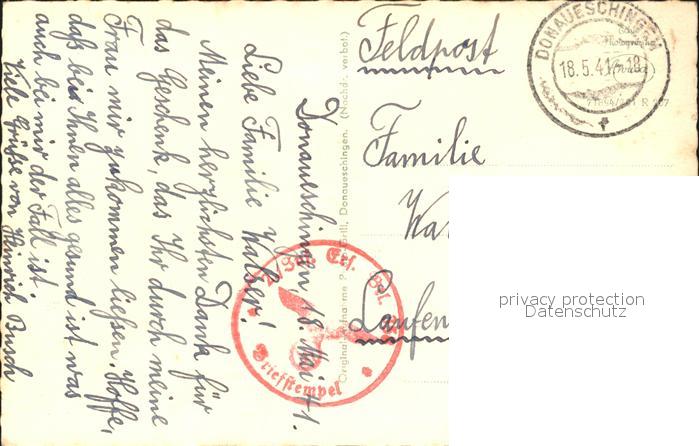 Donaueschingen, 18. Mai 41.
Liebe Familie Walser!
Meinen herzlichsten Dank für
das Geschenk, das Ihr durch meine
Frau mir zukommen ließen. Hoffe,
daß bei Ihnen alles gesund ist was
auch bei mir der Fall ist.
Viele Grüße von Heinrich Busch
Feldpost
Familie
Wa
Laufen
DONAUESCHINGEN
18.5.41-18
Briefstempel
Donaueschingen. (Nachdr. verbot.)
privacy protection
Datenschutz